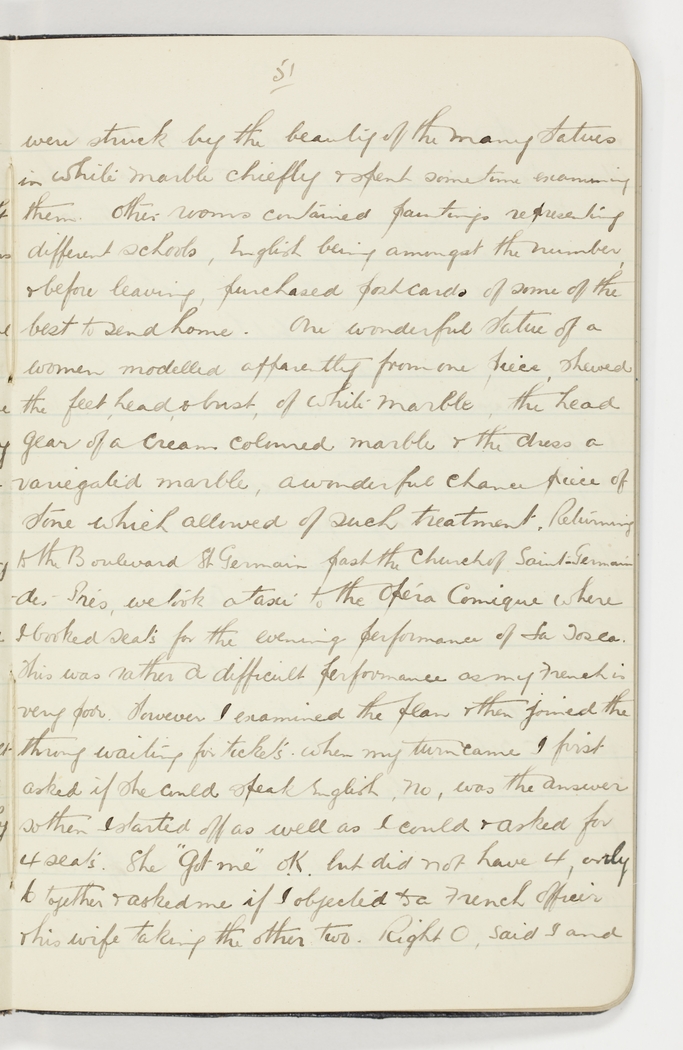 51
were struck by the beauty of the many Satues
in white marble chiefly & spent sometime examining
them. Other rooms contained paintings representing
different schools, English being amongst the number,
& before leaving, purchased postcards of some of the
best to send home. One wonderful Satue of a
women modelled apparently from one piece, shewed
the feet, head, & bust, of white marble, the head
gear of a cream coloured marble & the dress a
variegated marble, a wonderful chance piece of
Stone which allowed of such treatment. Returning
to the Boulevard St Germain past the Church of Saint-Germain
-des-Prés, we took a taxi to the Opéra Comique where
I booked seats for the evening performance of La Tosca.
This was rather a difficult performance as my French is
very poor. However I examined the plan & then joined the
throng waiting for tickets. When my turn came I first
asked if she could speak English, No, was the answer
so then I started off as well as I could & asked for
4 seats. She "Got me" O.K. but did not have 4, only
6 together & asked me if I objected to a French officer
& his wife taking the other two. Right O, said I and